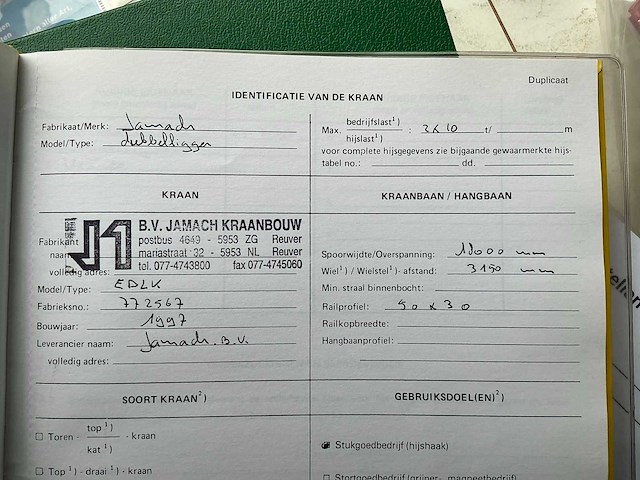 Duplicaat
IDENTIFICATIE VAN DE KRAAN
Fabrikaat/Merk: Jamach
Model/Type: dubbelligger
Max. bedrijfslast¹) hijslast¹) : 2x10 t/ m
voor complete hijsgegevens zie bijgaande gewaarmerkte hijs-
tabel no.: dd.
KRAAN
Fabrikant
naam
volledig adres:
J1 B.V. JAMACH KRAANBOUW
postbus 4649 - 5953 ZG Reuver
mariastraat 32 - 5953 NL Reuver
tel. 077-4743800 fax 077-4745060
Model/Type: EDLK
Fabrieksno.: 772567
Bouwjaar: 1997
Leverancier naam: Jamach. B.V.
volledig adres:
KRAANBAAN / HANGBAAN
Spoorwijdte/Overspanning: mm
Wiel¹) / Wielstel¹)- afstand: 3150 mm
Min. straal binnenbocht:
Railprofiel: 50 x 30
Railkopbreedte:
Hangbaanprofiel:
SOORT KRAAN²)
Toren - top¹) kat¹) - kraan
Top¹) - draai¹) - kraan
GEBRUIKSDOEL(EN)²)
Stukgoedbedrijf (hijshaak)
Stortgoedbedrijf (grijper-, magneetbedrijf)